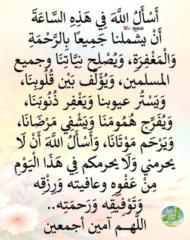 أَسْأَلُ اللَّهَ فِي هَذِهِ السَّاعَةَ
أَنْ يَشْمَلنَا جَمِيعًا بِالرَّحْمَةِ
وَالْمَغْفِرَةِ، وَيُصْلِحَ نِيَّاتِنَا وجميع
المسلمين، وَيُؤَلِّفَ بَيْنَ قُلُوبِنَا،
وَيَسْتُر عيوبنا وَيَغْفِر ذُنُوبَنَا،
وَيُفَرِّج هُمُومَنَا وَيَشْفِي مَرْضَانَا،
وَيَرْحَم مَوْتَانَا، وَأَسْأَلُ اللَّهَ أَنْ لَا
يحرمني وَلَا يحرمكم فِي هَذَا الْيَوْمِ
مِنْ عَفْوِهِ وعافيته وَرِزْقِهِ
وَتَوْفِيقِهِ وَرَحمَته..
اللَّهـم آمين أجمعين